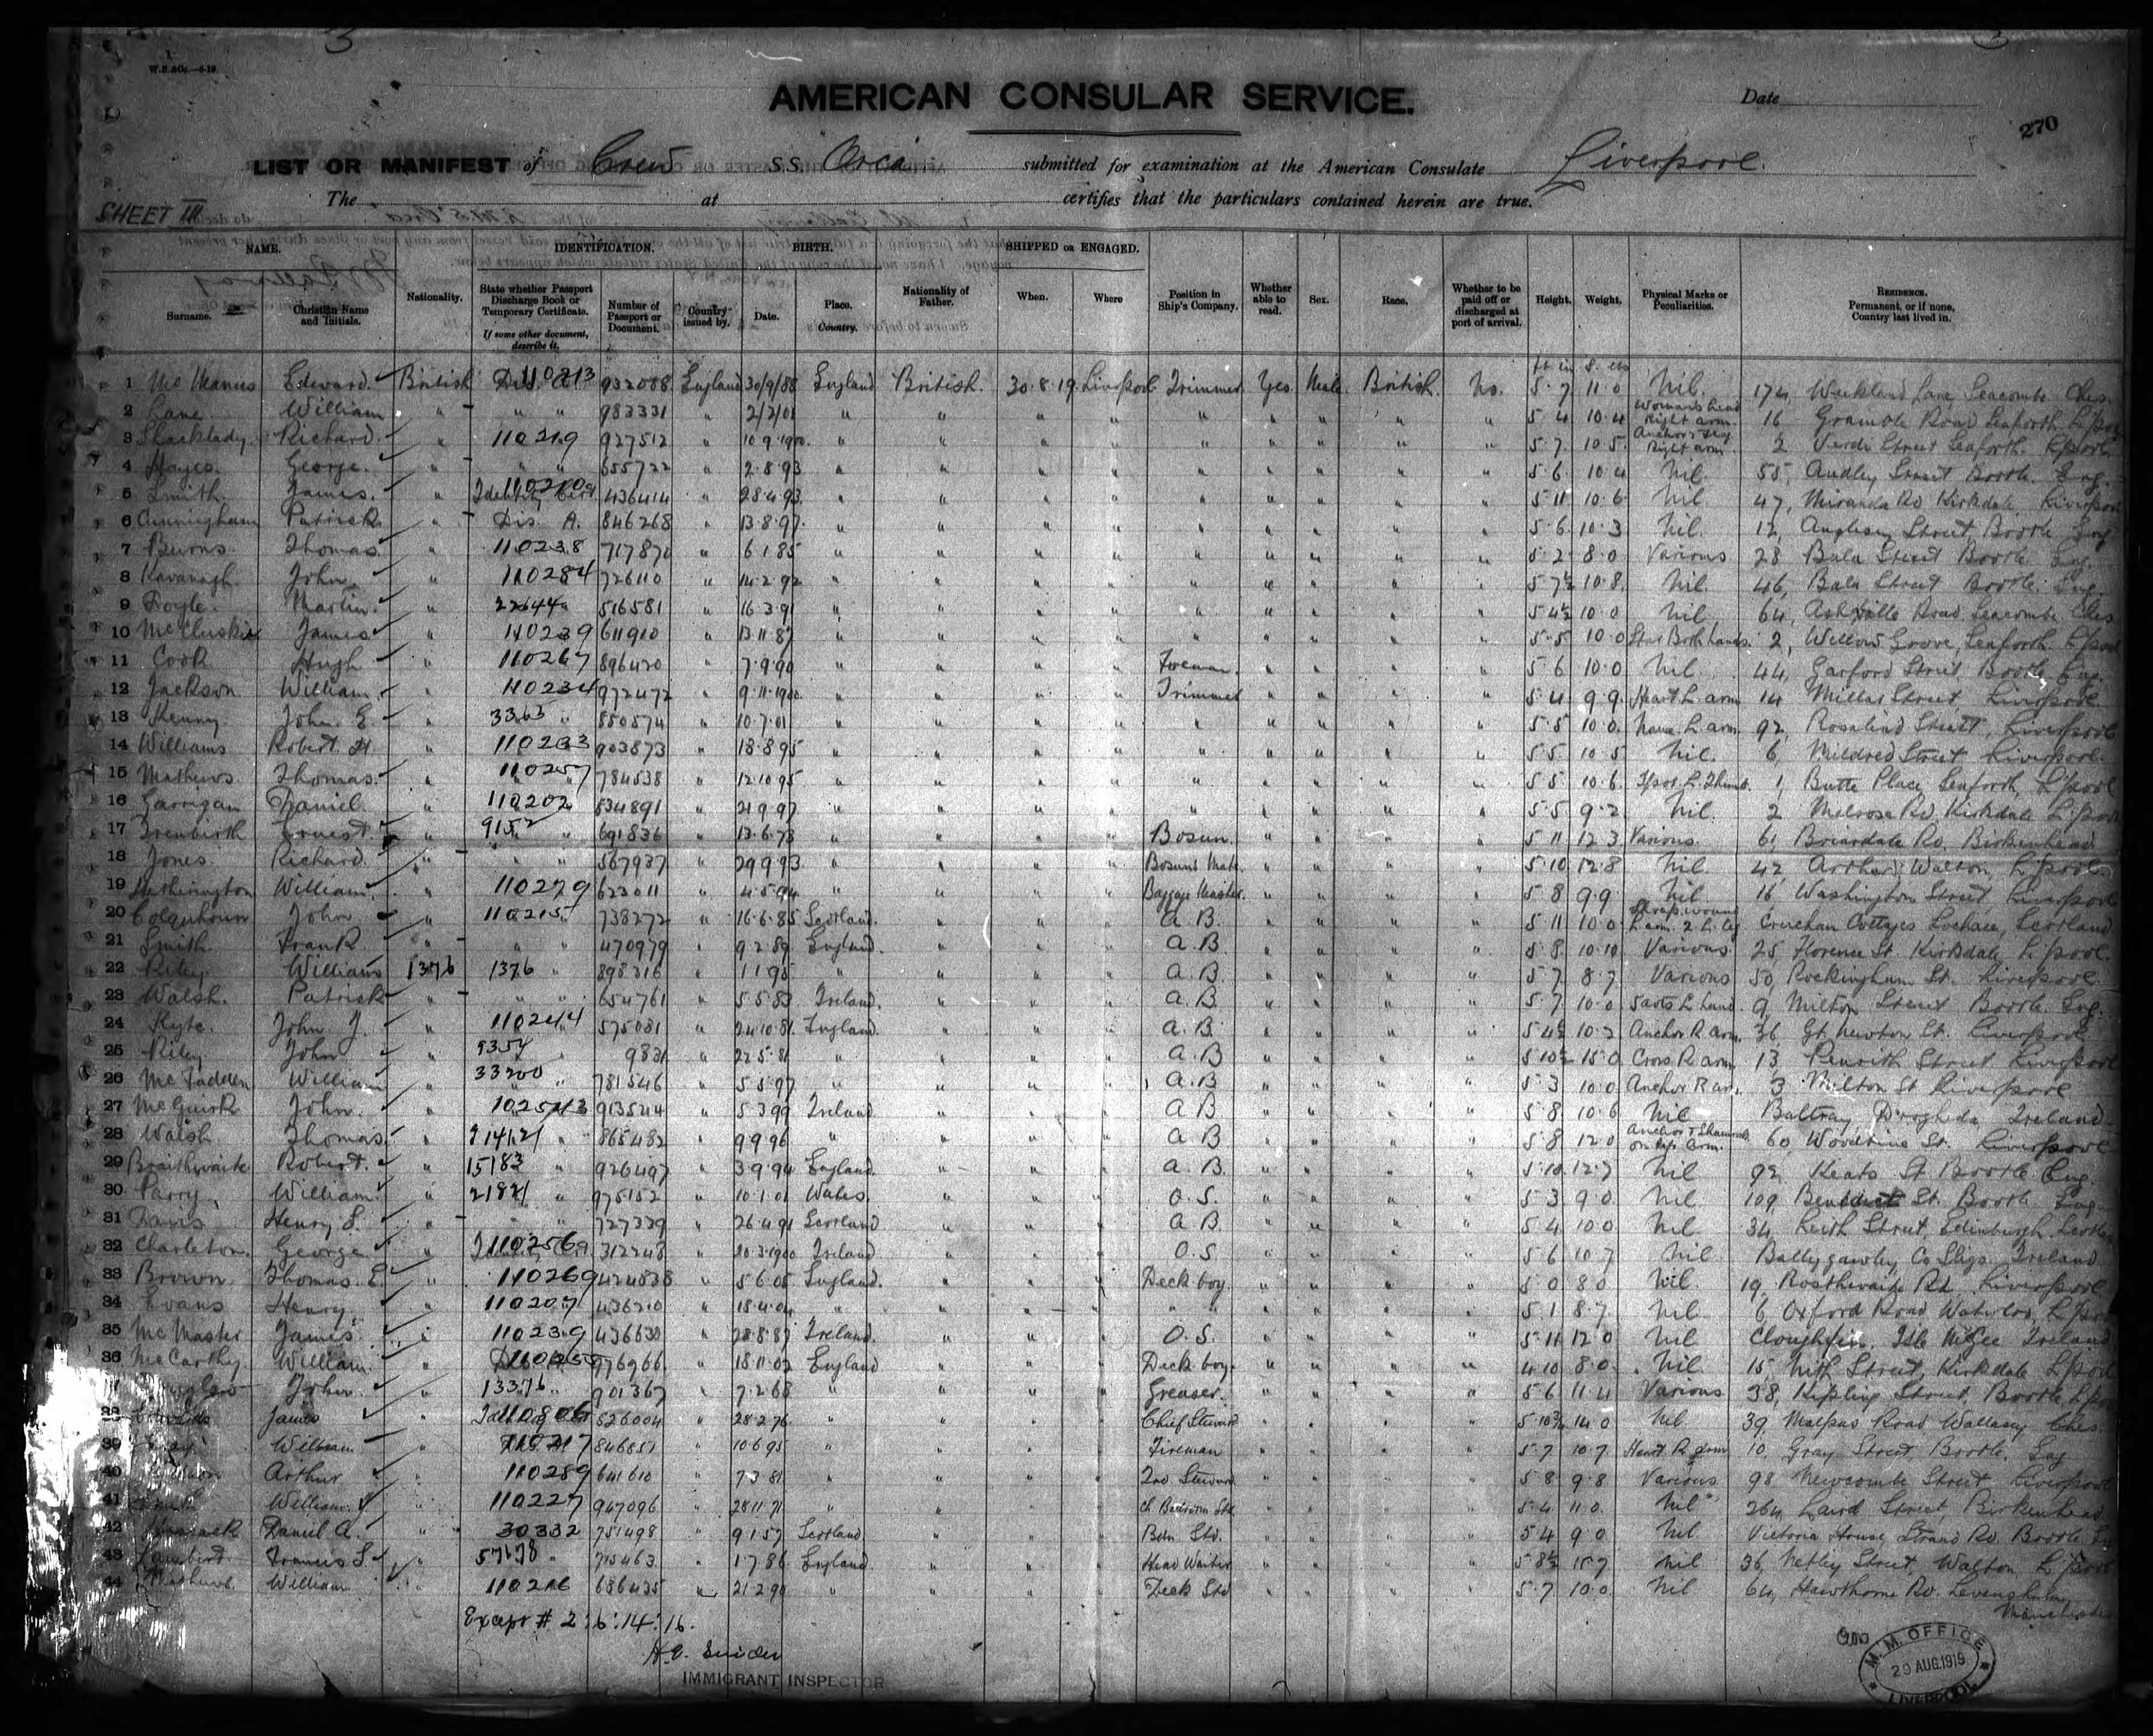 3
W.B.&Os.—6-19.
AMERICAN CONSULAR SERVICE.
Date
270
LIST OR MANIFEST of Crew S.S. "Orca" submitted for examination at the American Consulate Liverpool.
The at certifies that the particulars contained herein are true.
SHEET III
NAME. IDENTIFICATION. BIRTH. SHIPPED OR ENGAGED.
Surname. Christian Name and Initials. Nationality. State whether Passport Discharge Book or Temporary Certificate. If some other document, describe it. Number of Passport or Document. Country issued by. Date. Place. Country. Nationality of Father. When. Where Position in Ship's Company. Whether able to read. Sex. Race. Whether to be paid off or discharged at port of arrival. Height. Weight. Physical Marks or Peculiarities. RESIDENCE. Permanent, or if none, Country last lived in.
1 McManus Edward British Dis. A. 110213 932088 England 30/9/88 England British 30.8.19 Liverpool Trimmer Yes Male British No. 5.7 11.0 Nil. Seacombe Ches.
2 Lane William " " " 983331 " 2/2/01 " " " " " " " " " 5 4 10.4 Woman's head Right arm 16 Road Seaforth L'pool
3 Shacklady Richard " 110219 927512 " 10.9.1900 " " " " " " " " " 5.7 10.5 Anchor & Flag Right arm 2 Verdi Street Seaforth L'pool
4 Hayes George " " " 655722 " 2.8.93 " " " " " " " " " 5 6 10 4 Nil. 55, Audley Street Bootle Eng.
5 Smith James " Identity Cert. 436414 " 28.4.93 " " " " " " " " " 5 11 10.6 Nil 47, Miranda Rd Kirkdale Liverpool
6 Cunningham Patrick " Dis. A. 846268 " 13.8.97 " " " " " " " " " 5.6 10.3 Nil. 12, Anglesey Street, Bootle Eng
7 Burns Thomas " 110238 717870 " 6 1 85 " " " " " " " " " 5.2 8.0 Various 28 Bala Street Bootle Eng.
8 Kavanagh John " 110284 726110 " 14.2.92 " " " " " " " " " 5 7½ 10.8 Nil. 46, Bala Street Bootle Eng.
9 Doyle Martin " 22644 516581 " 16 3 91 " " " " " " " " " 5 4½ 10 0 Nil. 64, Road Seacombe Ches
10 McCluskie James " 110239 611910 " 13.11.87 " " " " " " " " " 5.5 10 0 Both hands 2, Willow Grove, Seaforth L'pool
11 Cook Hugh " 110267 896420 " 7.9.90 " " " " Foreman " " " " 5 6 10.0 Nil 44, Garford Street, Bootle Eng.
12 Jackson William " 110234 972472 " 9.11.1900 " " " " Trimmer " " " " 5 4 9 9 Heart L arm 14 Millar Street Liverpool
13 Kenny John E. " 3363 850574 " 10.7.01 " " " " " " " " " 5 5 10 0 Name L arm 92, Rosalind Street, Liverpool
14 Williams Robert H " 110233 903873 " 18.8.95 " " " " " " " " " 5 5 10 5 Nil. 6, Mildred Street Liverpool
15 Mathews Thomas " 110257 784538 " 12.10.95 " " " " " " " " " 5 5 10.6 L. Thumb 1, Butte Place, Seaforth, L'pool
16 Garrigan Daniel " 110202 534891 " 21 9 97 " " " " " " " " " 5 5 9.2 Nil. 2 Melrose Rd, Kirkdale L'pool
17 Trenbirth Ernest " 9152 691836 " 13.6.73 " " " " Bosun " " " " 5 11 12 3 Various 61 Briardale Rd. Birkenhead
18 Jones Richard " " " 567937 " 29.9.93 " " " " Bosun's Mate " " " " 5 10 12.8 Nil. 42, Walton, L'pool
19 Hetherington William " 110279 623011 " 4.5.94 " " " " Baggage Master " " " " 5 8 9.9 Nil 16 Washington Street Liverpool
20 Colquhoun John " 110215 738272 " 16.6.85 Scotland " " " A.B. " " " " 5 11 10 0 Shrap. wound L. arm & L. leg Cruachan Cottages Lochawe, Scotland
21 Smith Frank " " " 470979 " 9 2 89 England " " " A.B. " " " " 5.8 10.10 Various 25, Florence St. Kirkdale L'pool
22 Riley William 1376 1376 898316 " " " " " A.B. " " " " 5 7 8.7 Various 50, Rockingham St. Liverpool
23 Walsh Patrick " " " 654761 " 5 5 83 Ireland " " " A.B. " " " " 5 7 10 0 L hand 9, Milton Street Bootle Eng.
24 Kyte John J. " 110244 575081 " 24 10 81 England " " " A.B. " " " " 5 4½ 10.2 Anchor R arm 36, Gt. Newton St. Liverpool
25 Riley John " 9354 9831 " 22 5 81 " " " " A.B " " " " 5 10½ 15 0 Cross R. arm 13 Penrith Street Liverpool
26 McFadden William " 33200 781546 " 5 5 97 " " " " A.B " " " " 5 3 10 0 Anchor R arm 3 Milton St Liverpool
27 McGuirk John " 913544 " 5 3 99 Ireland " " " A B " " " " 5 8 10.6 Nil Baltray, Drogheda, Ireland
28 Walsh Thomas " 865482 " 9 9 96 " " " " A B " " " " 5 8 12 0 Anchor & Shamrock on arm 60, Woodbine St. Liverpool
29 Braithwaite Robert " 15183 926497 " 3.9.94 England " " " A.B. " " " " 5.10 12.7 Nil 92, Keats St Bootle Eng.
30 Parry William " 975152 " 10.1.01 Wales " " " O.S. " " " " 5 3 9 0 Nil. 109, Benedict St. Bootle Eng
31 Davis Henry S. " " " 727339 " 26 4 91 Scotland " " " A B. " " " " 5 4 10 0 Nil 34, Keith Street, Edinburgh
32 Charleton George " 110256 312248 " 20.3.1900 Ireland " " " O.S " " " " 5 6 10 7 Nil Ballygawley Co Sligo Ireland
33 Brown Thomas E. " 110269 424838 " 5 6 05 England " " " Deck boy " " " " 5 0 8 0 Nil. 19, Rosthwaite Rd Liverpool
34 Evans Henry " 110207 436210 " 18.4.04 " " " " " " " " " 5 1 8.7 Nil 6 Oxford Road Waterloo, L'pool
35 McMaster James " 110239 436630 " 28.8.87 Ireland " " " O.S. " " " " 5.11 12 0 Nil Isle McGee Ireland
36 McCarthy William " 976966 " 18.11.02 England " " " Deck boy " " " " 4 10 8.0 Nil 15, Nith Street, Kirkdale L'pool
John " 13376 901367 " 7.2.68 " " " " Greaser " " " " 5 6 11 4 Various 38, Kipling Street, Bootle L'pool
38 James " 526004 " 28 2 76 " " " " Chief Steward " " " " 14 0 Nil. 39, Malpas Road Wallasey Ches
39 William " 110217 846851 " 10 6 95 " " " " Fireman " " " " 5.7 10.7 Heart R. arm 10, Gray Street, Bootle, Eng
40 Arthur " 110289 641610 " 7 3 81 " " " " 2nd Steward " " " " 5 8 9.8 Various 98 Newcombe Street Liverpool
41 William " 110227 947096 " 28 11 71 " " " " Ch Bedroom Std. " " " " 5 4 11 0 Nil 264, Laird Street, Birkenhead
42 Daniel A. " 30332 751498 " 9 1 57 Scotland " " " Bdm Std. " " " " 5 4 9 0 Nil Victoria House Strand Rd. Bootle
43 Lambert Francis S " 715463 " 1 7 86 England " " " Head Waiter " " " " 5 8½ 15 7 Nil 36, Netley Street, Walton L'pool
44 Mathews William " 110216 686435 " 21 2 90 " " " " Deck Std " " " " 5.7 10 0 Nil 64, Hawthorne Rd. Levenshulme
Manchester
Except # 2:6:14:16.
H.E. Snider
IMMIGRANT INSPECTOR
M.M. OFFICE
29 AUG. 1919
LIVERPOOL